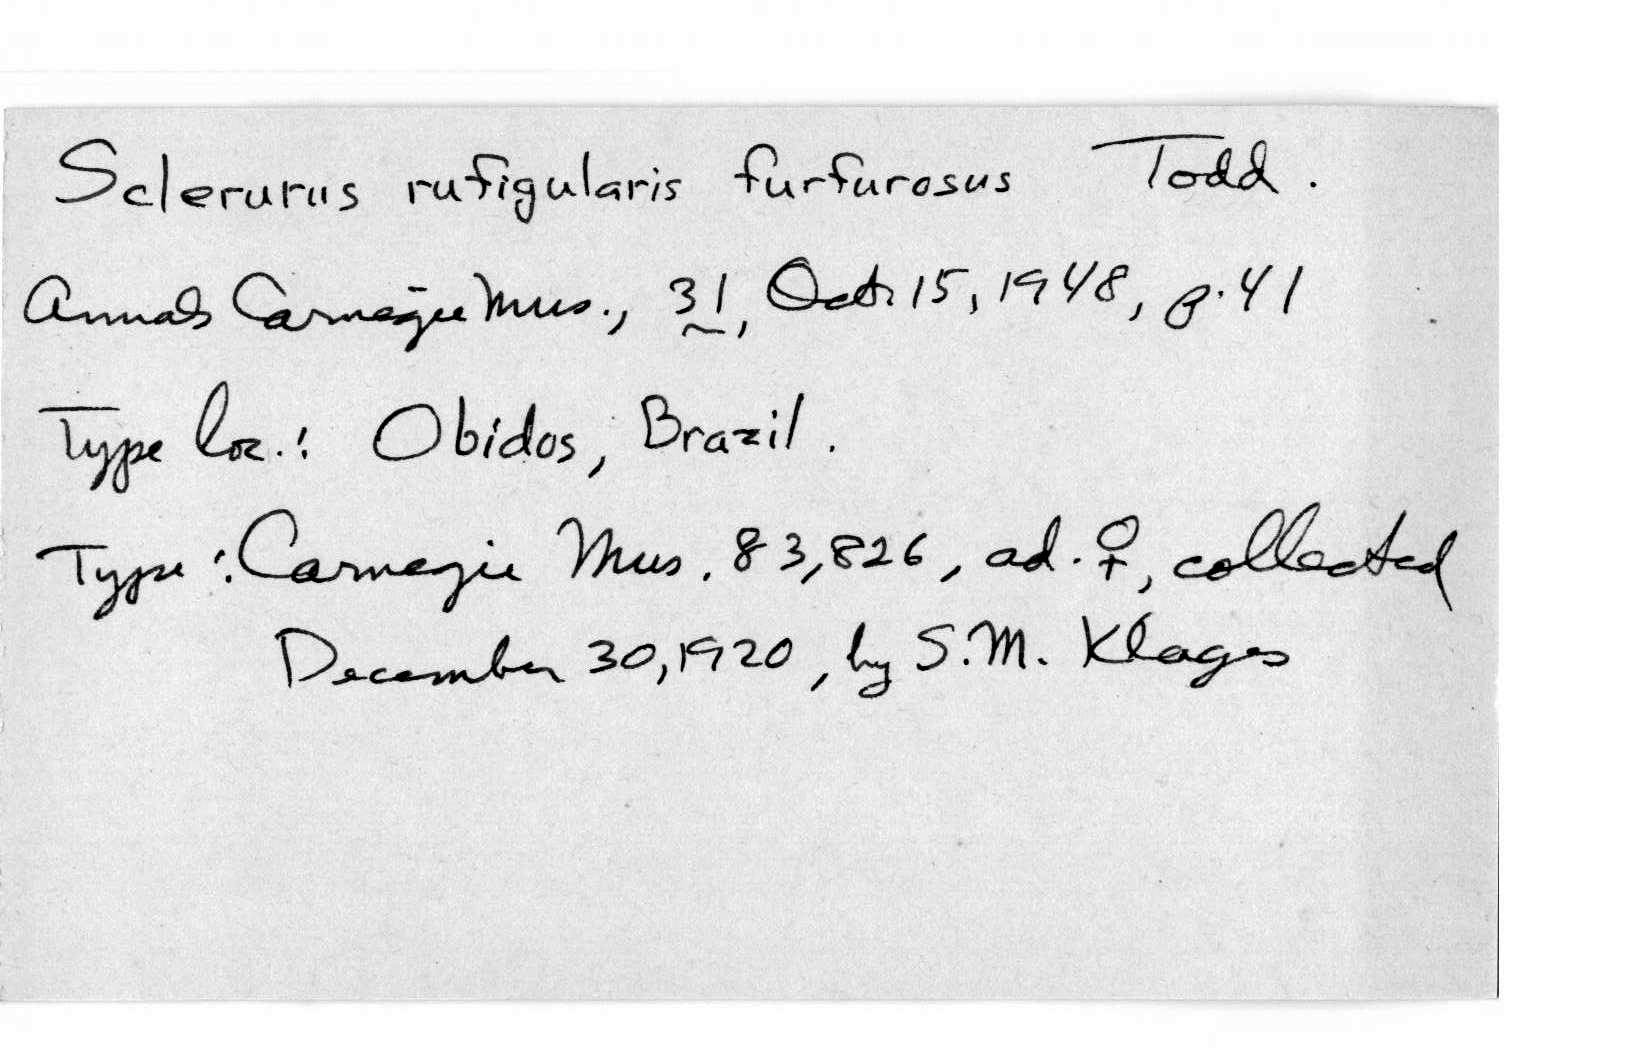 Sclerurus rufigularis furfurosus Todd.
Annals Carnegie Mus., 31, Oct. 15, 1948, p. 41
Type loc.: Obidos, Brazil.
Type: Carnegie Mus. 83,826, ad. ♀, collected
December 30, 1920, by S.M. Klages